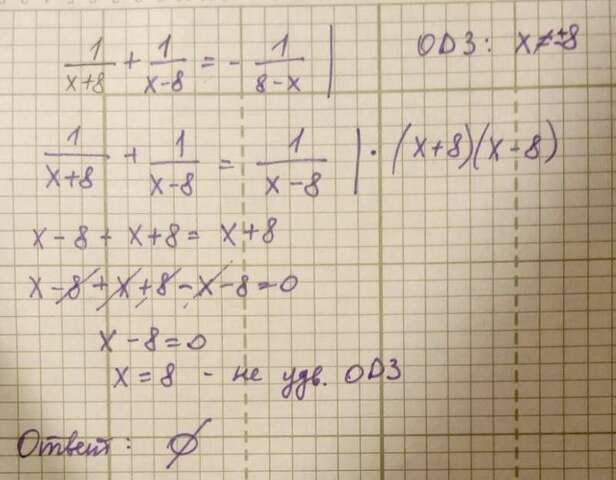 1/(x+8) + 1/(x-8) = - 1/(8-x) | ОДЗ: x≠±8
1/(x+8) + 1/(x-8) = 1/(x-8) | · (x+8)(x-8)
x-8 + x+8 = x+8
x-8+x+8-x-8=0
x-8=0
x=8 - не удв. ОДЗ
Ответ: ∅